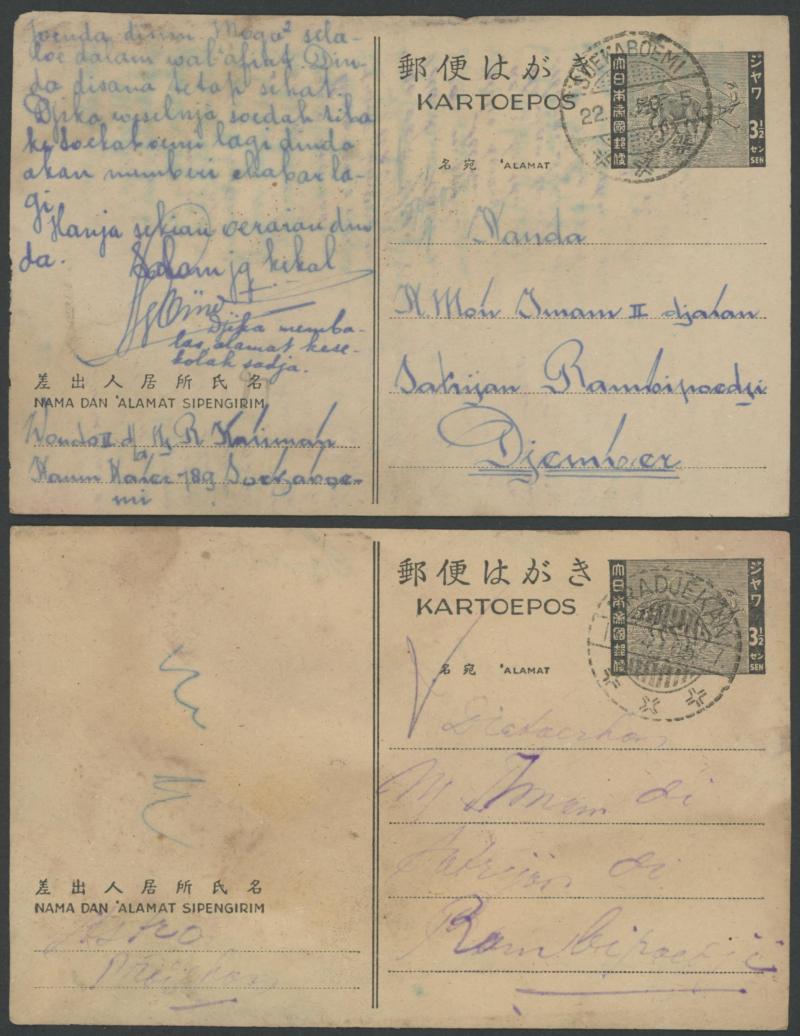 Joenda disini Moga² sela-
loe dalam wal'afiat. Din-
da disana tetap sehat.
Djika wiselnja soedah tiba
ke Soekaboemi lagi dinda
akan memberi chabar la-
gi.
Hanja sekian oeraian din
da.
Salam jg kekal
Djika memba-
las, alamat kese-
kolah sadja.
差出人居所氏名
NAMA DAN 'ALAMAT SIPENGIRIM
R Kaliman
Kaum Kaler 789 Soekaboe-
mi
郵便はがき
KARTOEPOS
名宛 'ALAMAT
SOEKABOEMI
22.
大日本帝國郵便
ジャワ
3½
セン
SEN
Kanda
R Moh Imam II djalan
Satrijan Rambipoedji
Djember
郵便はがき
KARTOEPOS
名宛 'ALAMAT
RADJEKAN
大日本帝國郵便
ジャワ
3½
セン
SEN
M Imam di
di
Rambipoedji
差出人居所氏名
NAMA DAN 'ALAMAT SIPENGIRIM